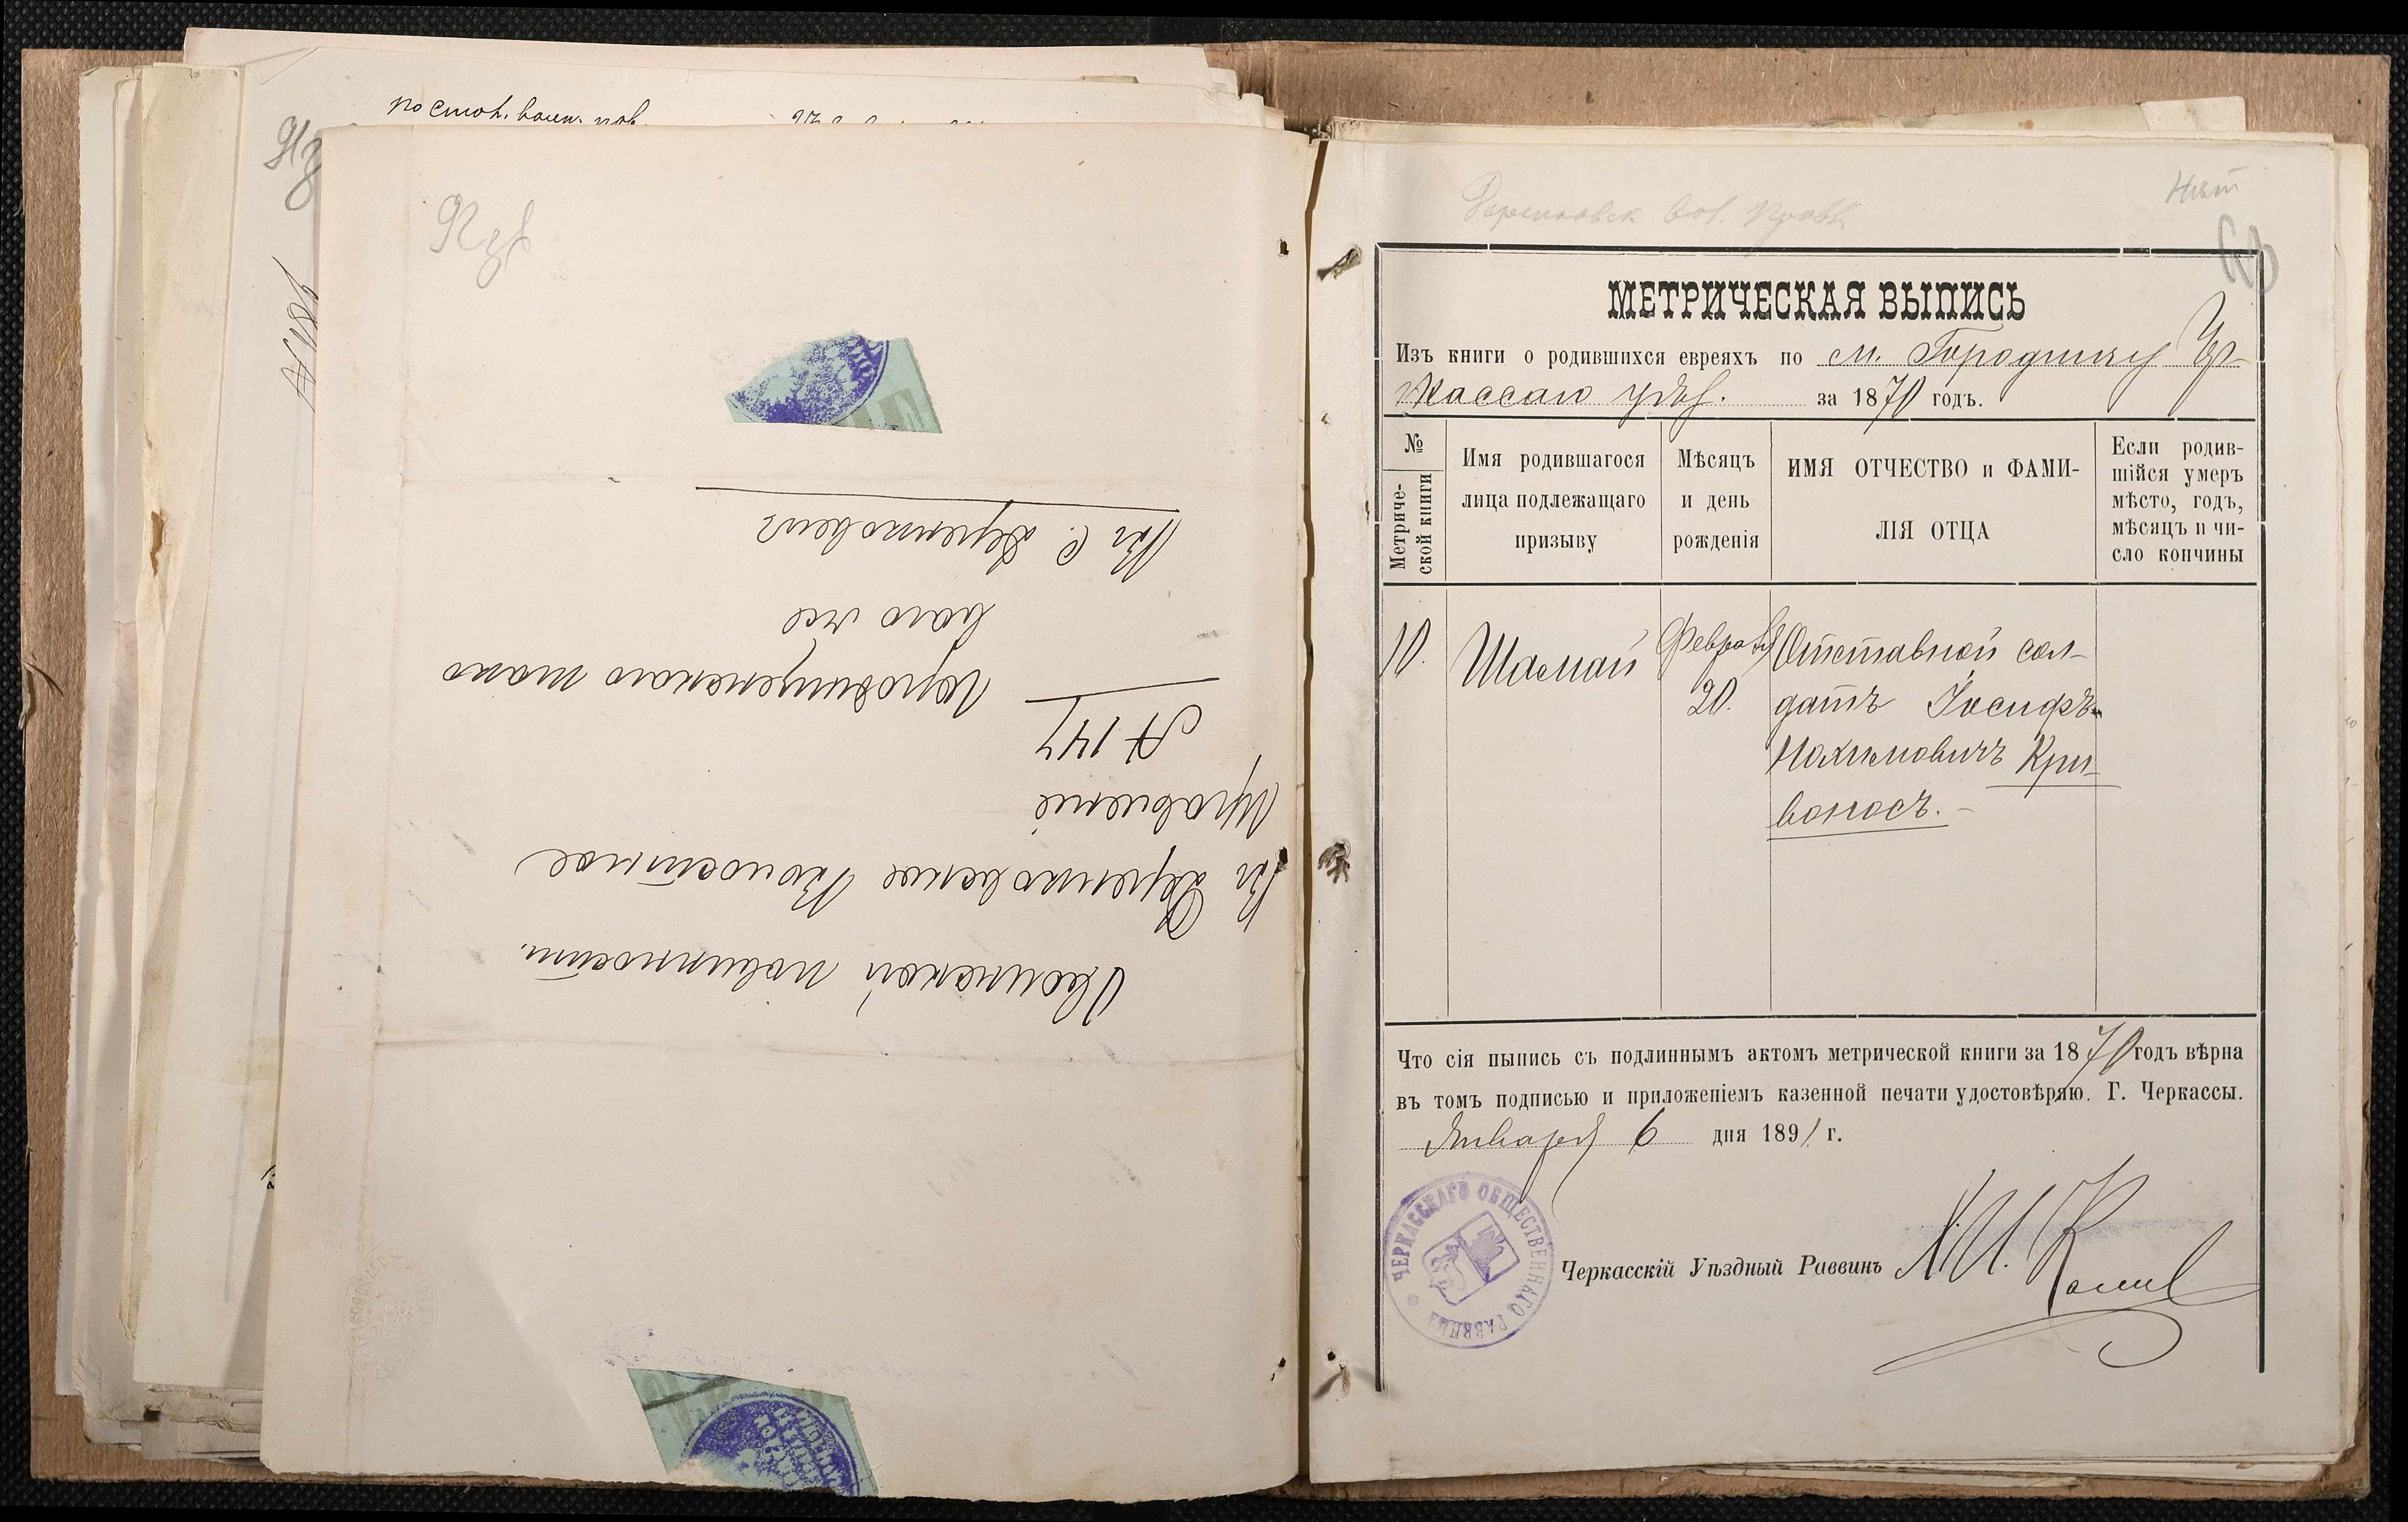 по
Воинской повинности.
Въ Деренковское Волостное
Правленіе
№ 147
Городищенскаго
Въ с. Деренковецъ
Нѣт
МЕТРИЧЕСКАЯ ВЫПИСЬ
Изъ книги о родившихся евреяхъ по м. Городищу Чер-
кассаго уѣз. за 1870 годъ.
№ Метриче-ской книги
Имя родившагося
лица подлежащаго
призыву
Мѣсяцъ
и день
рожденія
ИМЯ ОТЧЕСТВО и ФАМИ-
ЛІЯ ОТЦА
Если родив-
шійся умеръ
мѣсто, годъ,
мѣсяцъ и чи-
сло кончины
10.
Шамай
Февраля
20.
Отставной сол-
датъ Іосифъ
Нахимовичъ Кри-
воносъ.
Что сія пыпись съ подлиннымъ актомъ метрической книги за 1870 годъ вѣрна
въ томъ подписью и приложеніемъ казенной печати удостовѣряю. Г. Черкассы.
Января 6 дня 1891 г.
ЧЕРКАССКАГО ОБЩЕСТВЕННАГО РАВВИНА
Черкасскій Уѣздный Раввинъ